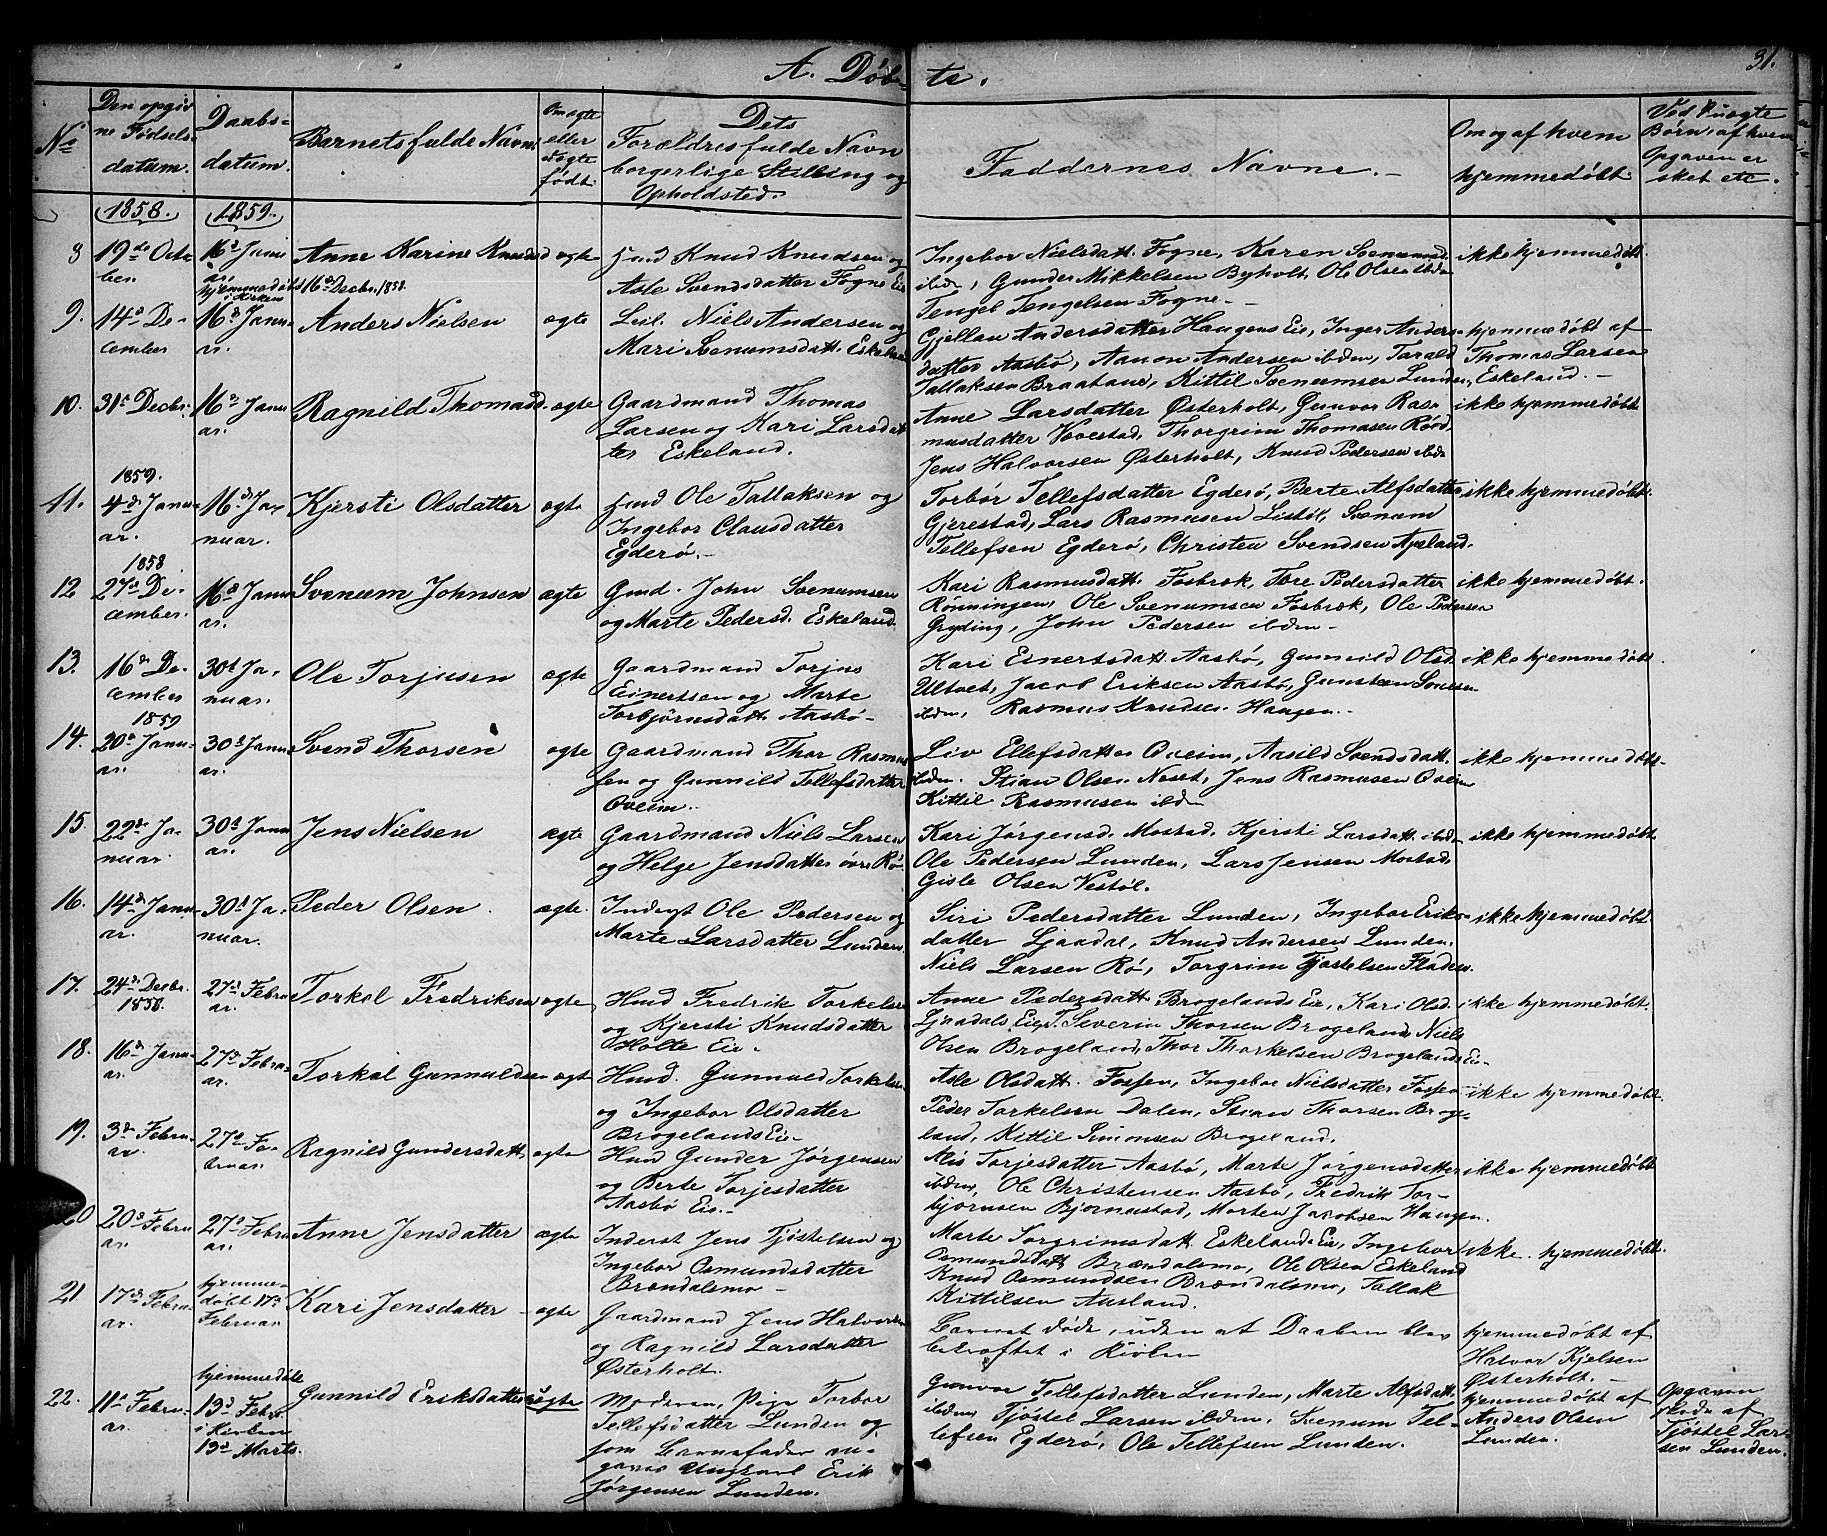 A. Döb-te.
31.
No
Den opgiv
ne Fødsels-
datum.
Daabs-
datum.
Barnets fulde Navn
Om ægte
eller
uægte
født.
Dets
Forældres fulde Navn
borgerlige Stilling og
Opholdsted.
Faddernes Navne.
Om og af hvem
hjemmedøbt.
Ved Uægte
Børn, af hvem
Opgaven er
sket etc.
1858.
1859.
8
19de Octo
ber.
16d Janu
ar.
hjemmedøbt 16d Decbr. 1858.
Anne Karine Knudsd
ægte
Hmd Knud Knudsen og
Asle Svendsdatter Fogne Eie
Ingebor Nielsdatt. Fogne, Karen Svenumsd.
ibdm, Gunder Mikkelsen Byholt, Ole Olsen ibdm
Tengel Tengelsen Fogne.
ikke hjemmedøbt.
9.
14d De-
cember
16d Janu-
ar.
Anders Nielsen
ægte
Leil. Niels Andersen og
Mari Svenumsdatt. Eskeland
Gjellau Andersdatter Haugens Eie, Inger Anders-
datter Aasbø, Aanon Andersen ibdm, Tarald
Tallaksen Braatane, Kittil Svenumsen Lunden,
hjemmedøbt af
Thomas Larsen
Eskeland.
10.
31d Decbr.
16d Janu
ar.
Ragnild Thomasd.
ægte
Gaardmand Thomas
Larsen og Kari Larsdat
ter Eskeland.
Anne Larsdatter Østerholt, Gunvor Ras-
musdatter Vovestad, Thorgrim Thomasen Røed
Jens Halvorsen Østerholt, Knud Pedersen ibdm
ikke hjemmedøbt
1859.
11.
4d Janu-
ar.
16d Ja-
nuar.
Kjersti Olsdatter
ægte
Hmd Ole Tallaksen og
Ingebor Clausdatter
Egderø.
Torbør Tellefsdatter Egderø, Berte Alfsdatter
Gjerestad, Lars Rasmusen Listøl, Svenum
Tellefsen Egderø, Christen Svendsen Apeland.
ikke hjemmedøbt.
1858
12
27d De-
cember.
16d Janu
ar.
Svenum Johnsen
ægte
Gmd. John Svenumsen
og Marte Pedersd. Eskeland
Kari Rasmusdatt. Fosbræk, Tore Pedersdatter
Rønningen, Ole Svenumsen Fosbræk, Ole Pedersen
Gryding, John Pedersen ibdm
ikke hjemmedøbt.
13.
16d De-
cember
30d Ja-
nuar.
Ole Torjusen
ægte
Gaardmand Torjus
Einertsen og Marte
Torbjørnsdatt. Aasbø
Kari Einertsdatt. Aasbø, Gunnild Olsd.
Ultvet, Jacob Eriksen Aasbø, Gunsten
ibdm, Rasmus Knudsen Haugen.
ikke hjemmedøbt.
1859
14.
20d Janu-
ar.
30d Janu
ar.
Svend Thorsen
ægte
Gaardmand Thor Rasmus
sen og Gunnild Tellefsdatter
Oveim.
Liv Ellefsdatter Oveim, Aasild Svendsdatt.
ibdm. Stian Olsen Næset, Jens Rasmusen Oveim
Kittil Rasmusen ibdm
ikke hjemmedøbt.
15.
22de Ja-
nuar.
30d Janu
ar.
Jens Nielsen
ægte
Gaardmand Niels Larsen
og Helge Jensdatter øvre Rø.
Kari Jørgensd. Mostad, Kjersti Larsdatt. ibdm
Ole Pedersen Lunden, Lars Jensen Mostad,
Gisle Olsen Vestøl.
ikke hjemmedøbt
16.
14d Janu-
ar.
30d Ja-
nuar.
Peder Olsen.
ægte.
Inderst Ole Pedersen og
Marte Larsdatter Lunden.
Siri Pedersdatter Lunden, Ingebor Eriks-
datter Ljaadal, Knud Andersen Lunden.
Niels Larsen Rø, Torgrim Tjøstelsen Fladen.
ikke hjemmedøbt
17.
24d Decbr.
1858.
27d Febru
ar.
Torkel Fredriksen
ægte
Hmd Fredrik Torkelsen
og Kjersti Knudsdatter
Holte Eie.
Anne Pedersdatt. Brogelands Eie, Kari Olsd.
Ljaadals Eie, Severin Thorsen Brogeland, Niels
Olsen Brogeland, Thor Thorkelsen Brogelands Eie
ikke hjemmedøbt.
18.
16d Janu-
ar.
27d Febru-
ar.
Torkel Gunnuldsen
ægte
Hmd. Gunnuld Torkelsen
og Ingebor Olsdatter
Brogelands Eie
Asle Olsdatt. Fossen, Ingebor Nielsdatter Fossen
Peder Torkelsen Dalen, Stian Thorsen Broge-
land, Kittil Simonsen Brogeland.
ikke hjemmedøbt.
19.
3d Febru-
ar.
27d Fe-
bruar.
Ragnild Gundersdatt.
ægte
Hmd Gunder Jørgensen
og Berte Torjesdatter
Aasbø Eie.
Alis Torjesdatter Aasbø, Marte Jørgensdatter
ibdm, Ole Christensen Aasbø, Fredrik Tor-
bjørnsen Bjørnestad, Morten Jacobsen Haugen.
ikke hjemmedøbt
20
20d Febru
ar.
27d Febru
ar.
Anne Jensdatter
ægte
Inderst Jens Tjøstelsen og
Ingebor Osmundsdatter
Brændalsmo
Marte Torgrimsdatt. Eskelands Eie, Ingebor
Osmundsdatt Brændalsmo, Ole Olsen Eskeland
Knud Osmundsen Brændalsmo, Tallak
Kittilsen Ausland.
ikke hjemmedøbt.
21
17d Febru-
ar.
hjemme-
døbt 17d
Februar
Kari Jensdatter
ægte
Gaardmand Jens Halvorsen
og Ragnild Larsdatter
Østerholt.
Barnet døde, uden at Daaben blev
bekræftet i Kirken
hjemmedøbt af
Halvor Kjelsen
Østerholt.
22.
11d Febru-
ar.
hjemmedøbt
13d Febr.
i Kirken
13d Marts.
Gunnild Eriksdatter
uægte
Moderen, Pige Torbor
Tellefsdatter Lunden og
som Barnefader an-
gaves Ungkarl Erik
Jørgensen Lunden.
Gunvor Tellefsdatter Lunden, Marte Alfsdatt.
ibdm, Tjøstel Larsen ibdm, Svenum Tel-
lefsen Egderø, Ole Tellefsen Lunden.
hjemmedøbt af
Anders Olsen
Lunden.
Opgaven
skede af
Tjøstel Lar-
sen Lunden.